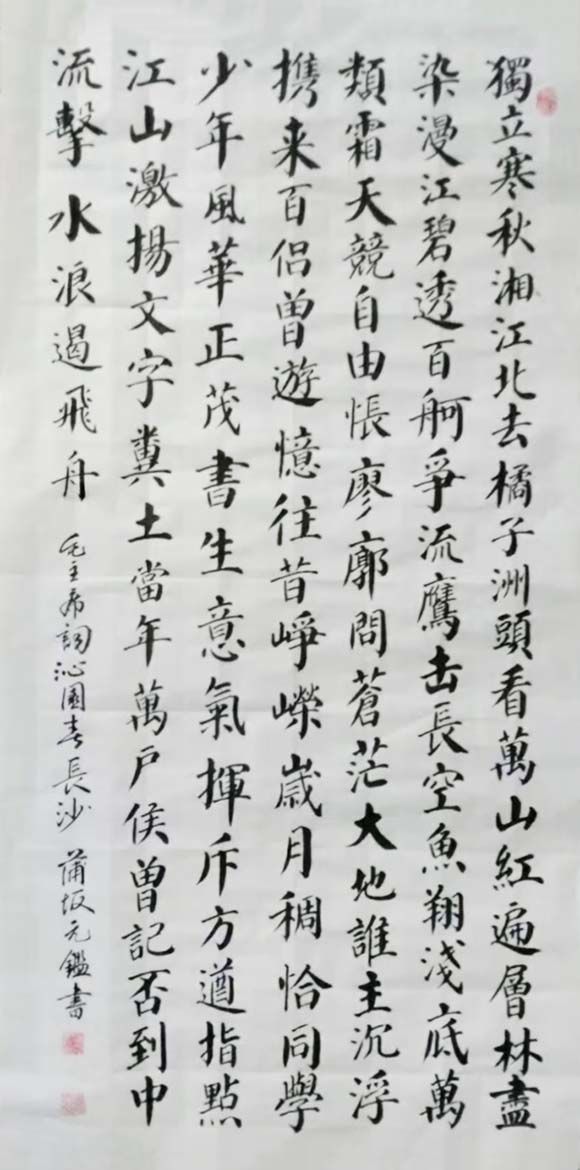 獨立寒秋湘江北去橘子洲頭看萬山紅遍層林盡
染漫江碧透百舸爭流鷹击長空魚翔浅底萬
類霜天競自由悵廖廓問蒼茫大地誰主沉浮
携来百侣曾遊憶往昔崢嶸歲月稠恰同學
少年風華正茂書生意氣揮斥方遒指點
江山激揚文字糞土當年萬户侯曾記否到中
流擊水浪遏飛舟 毛主席詞沁園春長沙 蒲坂元鑑書